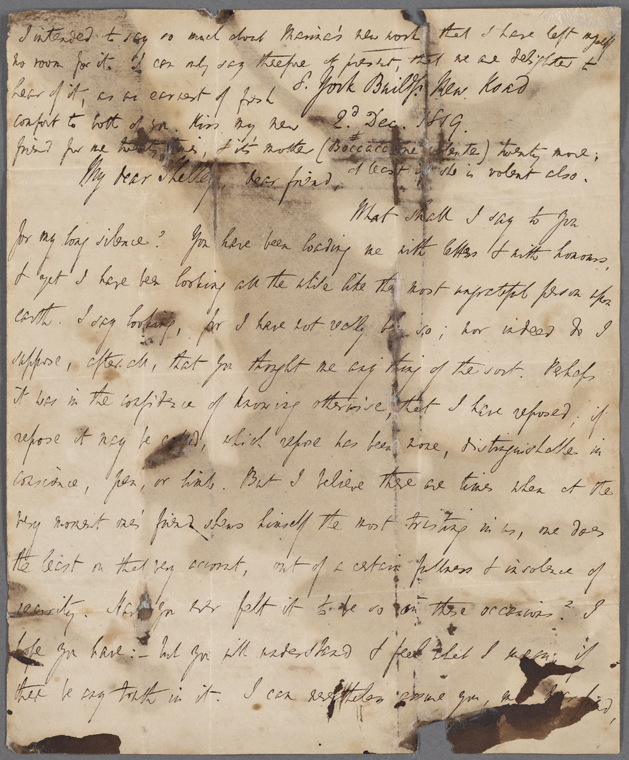 I intended to say so much about Marina's new work that I have left myself
no room for it. I can only say therefore at present, that we are delighted to
hear of it, as an earnest of fresh
8. York Buildgs. New Road
comfort to both of you. Kiss my new
2d Dec. 1819.
friend for me twenty times, & it's mother (twenty more;
at least if she is violent also.
My dear Shelley, dear friend,
What shall I say to you
for my long silence? You have been loading me with letters & with honours,
& yet I have been looking all the while like the most ungrateful person upon
earth. I say looking, for I have not really been so; nor indeed do I
suppose, after all, that you thought me any thing of the sort. Perhaps
it was in the confidence of knowing otherwise, that I have reposed; if
repose it may be called, which repose has been none, distinguishable in
conscience, pen, or limb. But I believe there are times when at the
very moment one's friend shews himself the most trusting in us, one does
the least on that very account, out of a certain fullness & insolence of
security. Have you ever felt it to be so on these occasions? I
hope you have:— but you will understand & feel what I mean, if
there be any truth in it. I can nevertheless assure you, my